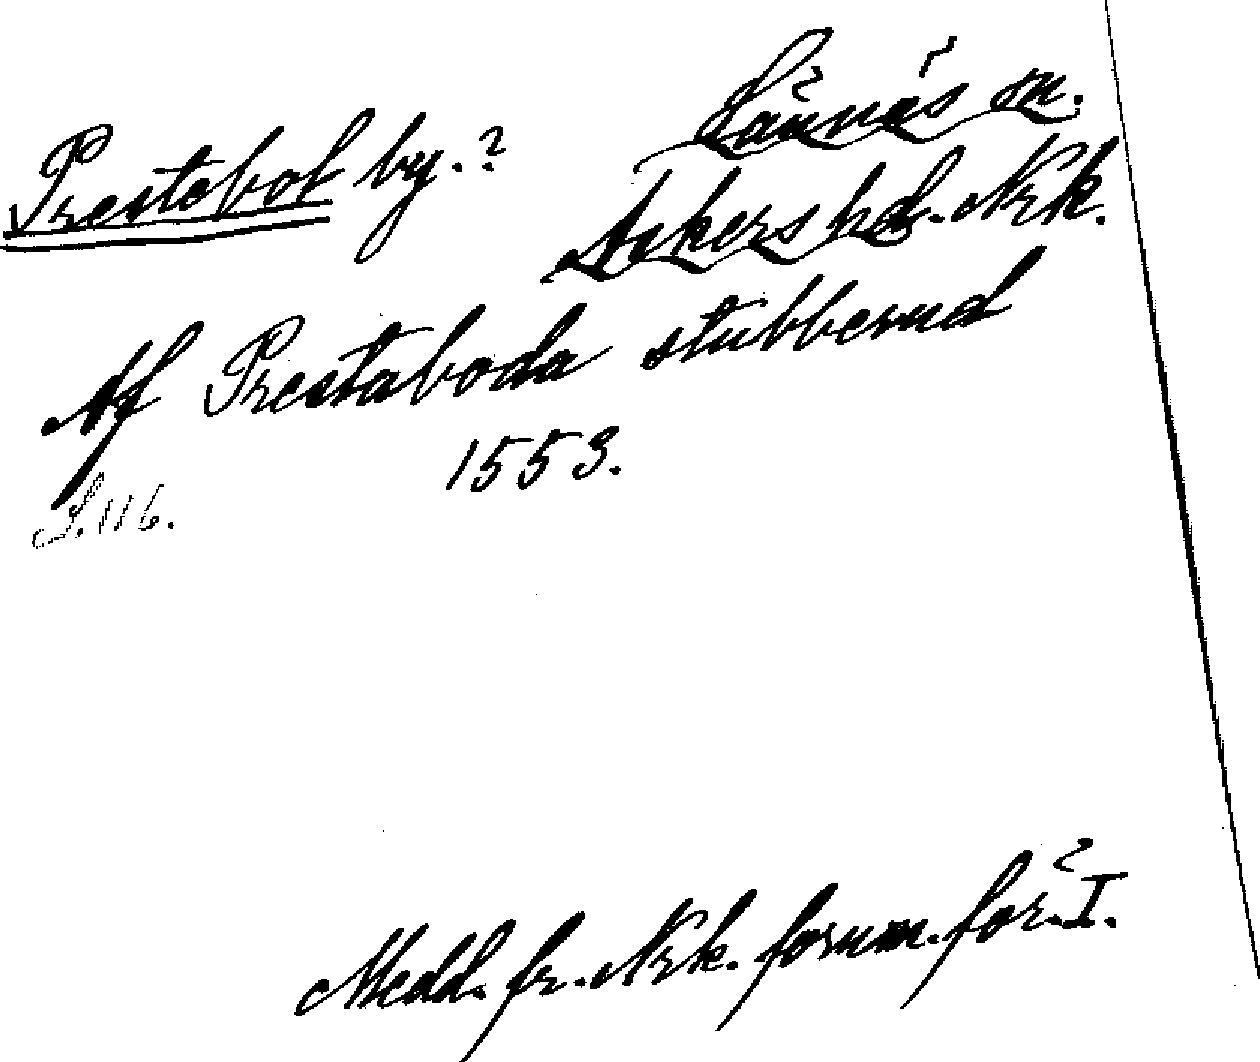 Prestebol by.?
Lännäs sn.
Askers hd. Nrk.
Af Prestaboda stubberud
1553.
S. 116.
Medd. fr. Nrk. fornm. för. I.